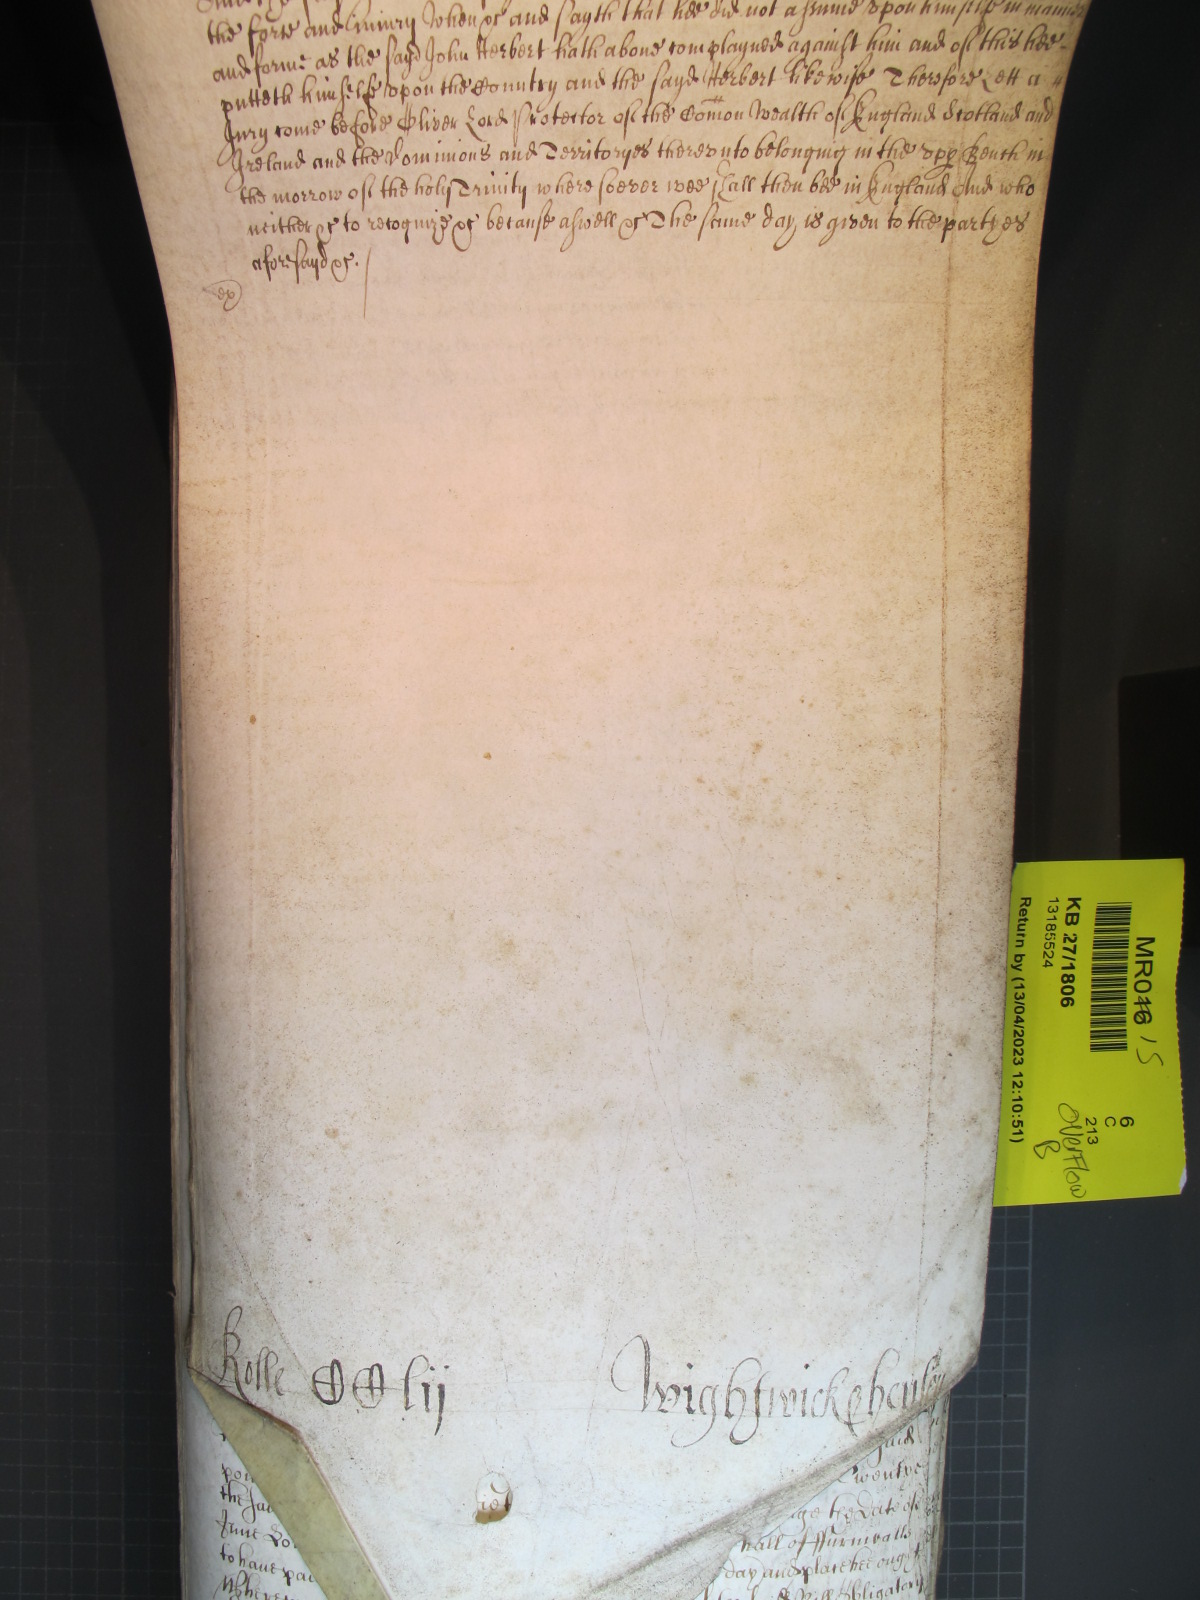 the force and Iniury when &c and sayth that hee did not assume vpon himselfe in manner
and forme as the sayd John Herbert hath aboue complayned against him and of this hee
putteth himselfe vpon the Country and the sayd Herbert likewise Therefore Lett a
Jury come before Oliver Lord Protector of the Com̄on Wealth of England Scotland and
Ireland and the Dominions and Territoryes therevnto belonging in the vpp Bench in
the morrow of the holy Trinity where soever wee shall then bee in England And who
neither &c to recognize &c because aswell &c The same day is given to the partyes
aforesayd &c.
ex
Rolle CClij
Wightwick & henley
said
pou
Twentye
the sai
age the Date of
June Lo
hall of ffurnivalls
to haue pai
day and place hee ought
Where
Bill Obligatory
MR016 15
KB 27/1806
13185524
Return by (13/04/2023 12:10:51)
6
C
213
Overflow
B